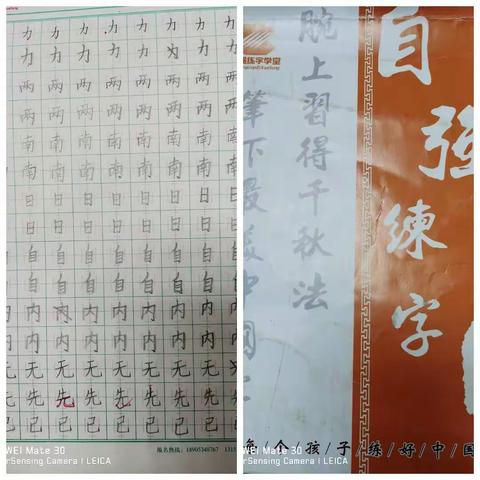 力 力 力 力 力 力 力 力
力 力 力 力 力 力 力
两 两 两 两 两 两 两 两
两 两 两 两 两 两 两 两
南 南 南 南 南 南 南 南
南 南 南 南 南 南 南 南
日 日 日 日 日 日 日 日
日 日 日 日 日 日 日 日
自 自 自 自 自 自 自 自
自 自 自 自 自 自 自 自
内 内 内 内 内 内 内 内
内 内 内 内 内 内 内 内
无 无 无 无 无 无 无
先 先 先 先 先 先 先
已 已 已 已 已 已 已 已
报名热线: 18905348767
WEI Mate 30
erSensing Camera | LEICA
练字学堂
自强练字
腕上習得千秋法
筆下
中国
个/孩/子/练/好/中/国
WEI Mate 30
erSensing Camera | LEICA